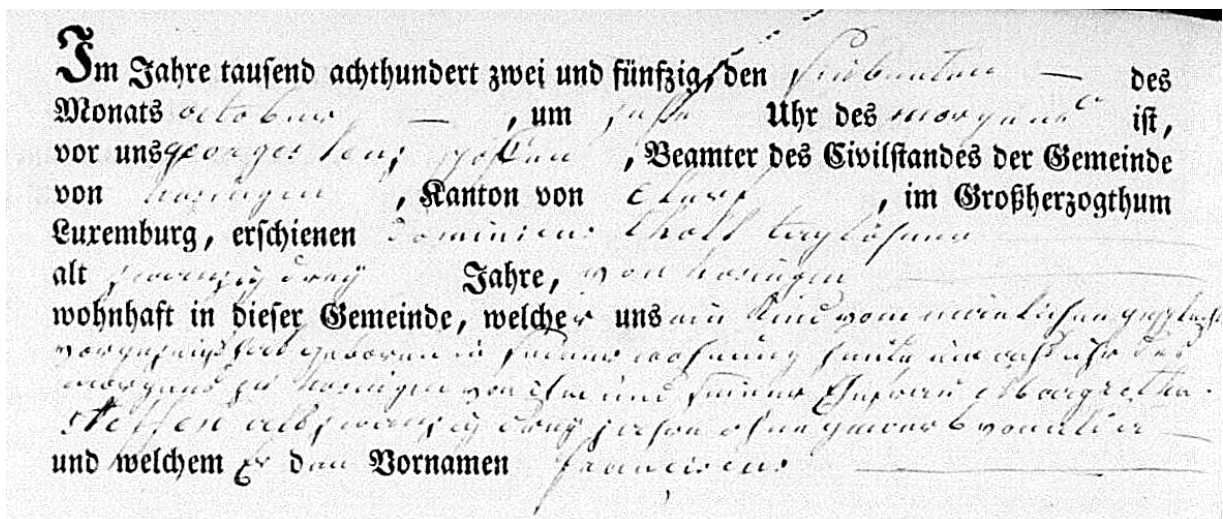 Im Jahre tausend achthundert zwei und fünfzig, den siebenten — des
Monats october — , um Uhr des morgens ist,
vor uns georges , Beamter des Civilstandes der Gemeinde
von hosingen , Kanton von Clerf , im Großherzogthum
Luxemburg, erschienen Dominicus taglöhner
alt zwanzig drey Jahre, von hosingen
wohnhaft in dieser Gemeinde, welcher uns ein Kind vom
geboren in seiner wohnung heute um acht uhr des
morgens zu hosingen von ihm und seiner Ehefrau Margretha
Steffen alt zwanzig drey ohne gewerb von alier
und welchem Er den Vornamen franciscus